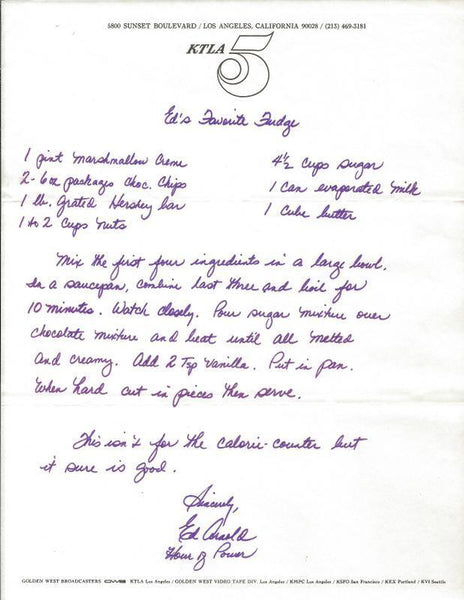 5800 SUNSET BOULEVARD / LOS ANGELES, CALIFORNIA 90028 / (213) 469-3181
KTLA 5
Ed's Favorite Fudge
1 pint marshmallow creme
2-6 oz packages choc. chips
1 lb. grated Hershey bar
1 to 2 cups nuts
4 1/2 cups sugar
1 can evaporated milk
1 cube butter
Mix the first four ingredients in a large bowl.
In a saucepan, combine last three and boil for
10 minutes. Watch closely. Pour sugar mixture over
chocolate mixture and beat until all melted
and creamy. Add 2 Tsp Vanilla. Put in pan.
When hard cut in pieces then serve.
This isn't for the calorie-counter but
it sure is good.
Sincerely,
Ed Arnold
Hour of Power
GOLDEN WEST BROADCASTERS GWB KTLA Los Angeles / GOLDEN WEST VIDEO TAPE DIV. Los Angeles / KMPC Los Angeles / KSFO San Francisco / KEX Portland / KVI Seattle